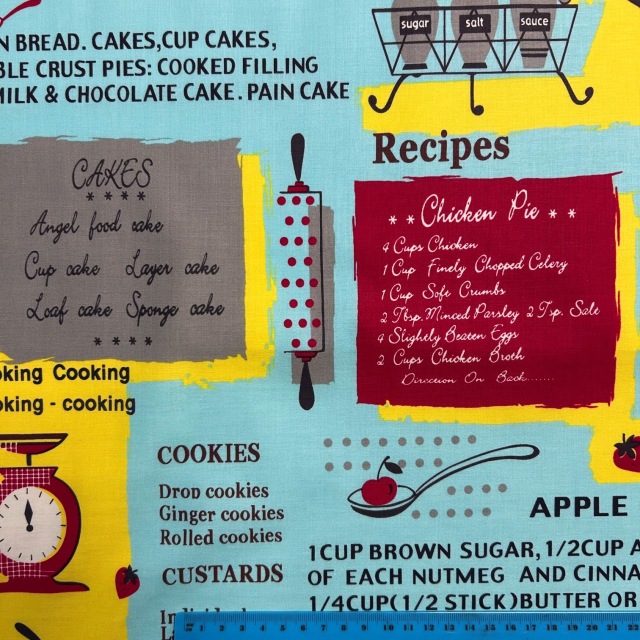 sugar salt sauce
N BREAD. CAKES,CUP CAKES,
BLE CRUST PIES: COOKED FILLING
MILK & CHOCOLATE CAKE. PAIN CAKE
Recipes
CAKES
* * * *
Angel food cake
Cup cake Layer cake
Loaf cake Sponge cake
* * * *
* * Chicken Pie * *
4 Cups Chicken
1 Cup Finely Chopped Celery
1 Cup Sofe Crumbs
2 Tbsp.Minced Parsley 2 Tsp. Sale
4 Slighely Beaten Eggs
2 Cups Chicken Broth
Direceion On Back.......
oking Cooking
oking - cooking
COOKIES
Drop cookies
Ginger cookies
Rolled cookies
CUSTARDS
APPLE
1CUP BROWN SUGAR,1/2CUP A
OF EACH NUTMEG AND CINNA
1/4CUP(1/2 STICK)BUTTER OR
1 2 3 4 5 6 7 8 9 10 11 12 13 14 15 16 17 18 19 20 21 22